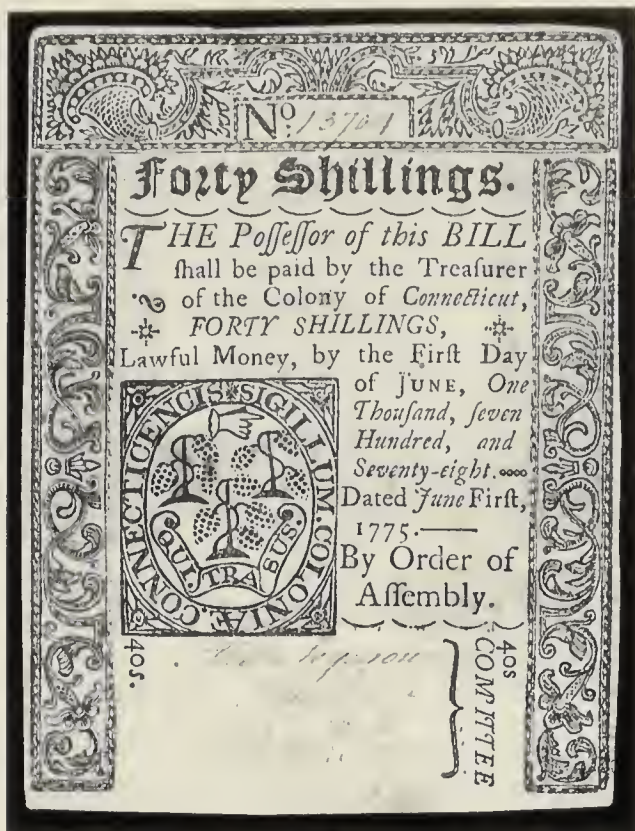 No. 13701
Forty Shillings.
THE Poſſeſſor of this BILL
ſhall be paid by the Treaſurer
of the Colony of Connecticut,
FORTY SHILLINGS,
Lawful Money, by the Firſt Day
of JUNE, One
Thouſand, ſeven
Hundred, and
Seventy-eight.
Dated June Firſt,
1775.
By Order of
Aſſembly.
SIGILLUM COLONIÆ CONNECTICENCIS
QUI TRA SUS
40s.
40s
COMITTEE